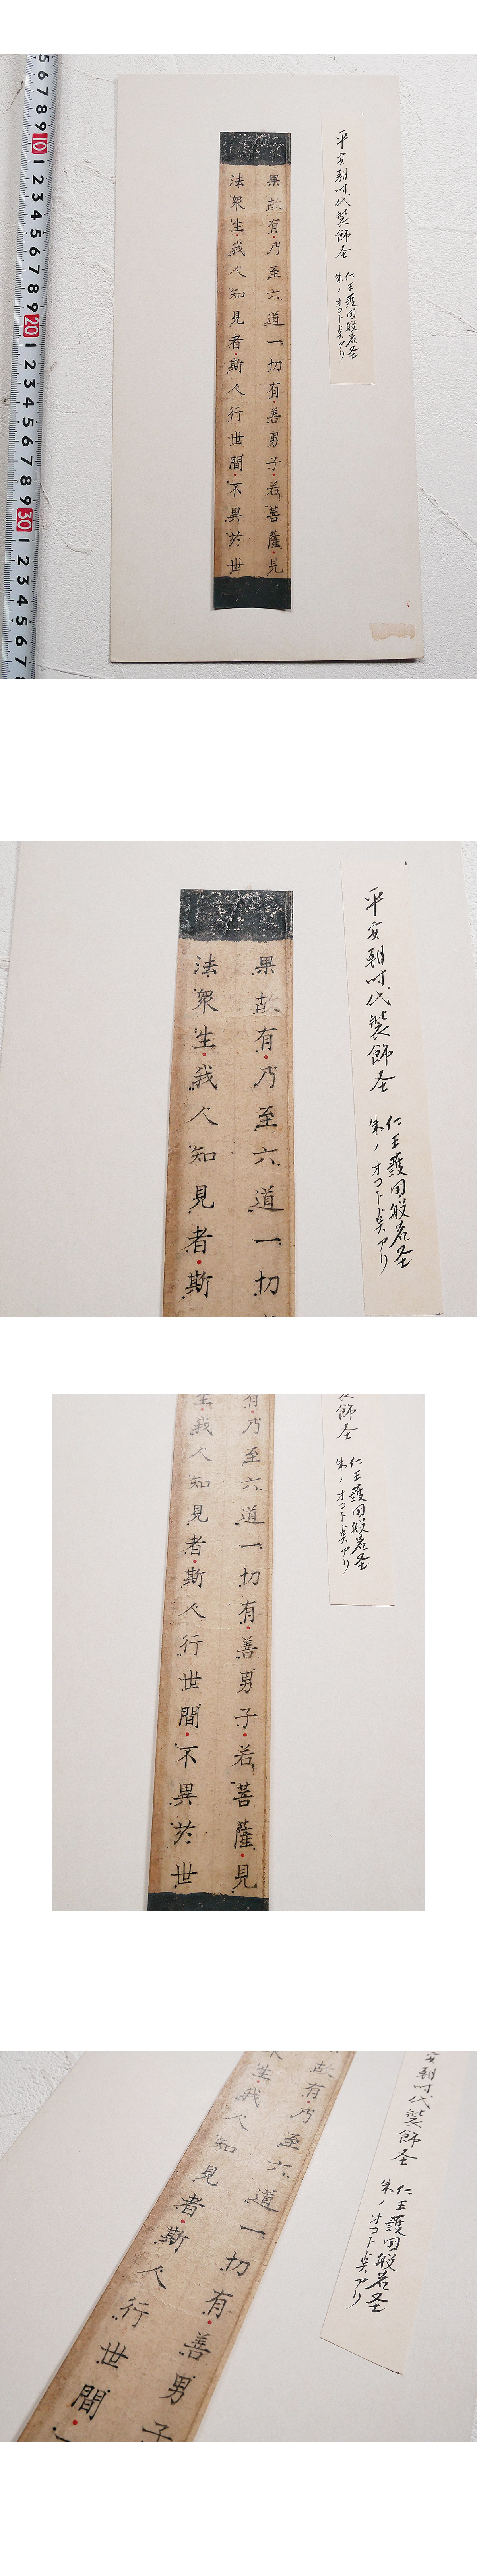 5
6
7
8
9
10
1
2
3
4
5
6
7
8
9
20
1
2
3
4
5
6
7
8
9
30
1
2
3
4
5
6
7
平安朝時代装飾圣
仁王護国般若圣
朱ノオコト点アリ
果故有乃至六道一切有善男子若菩薩見
法衆生我人知見者斯人行世間不異於世
平安朝時代装飾圣
仁王護国般若圣
朱ノオコト点アリ
果故有乃至六道一切
法衆生我人知見者斯
飾圣
仁王護国般若圣
朱ノオコト点アリ
有乃至六道一切有善男子若菩薩見
生我人知見者斯人行世間不異於世
安朝時代装飾圣
仁王護国般若圣
朱ノオコト点アリ
故有乃至六道一切有善男子
生我人知見者斯人行世間